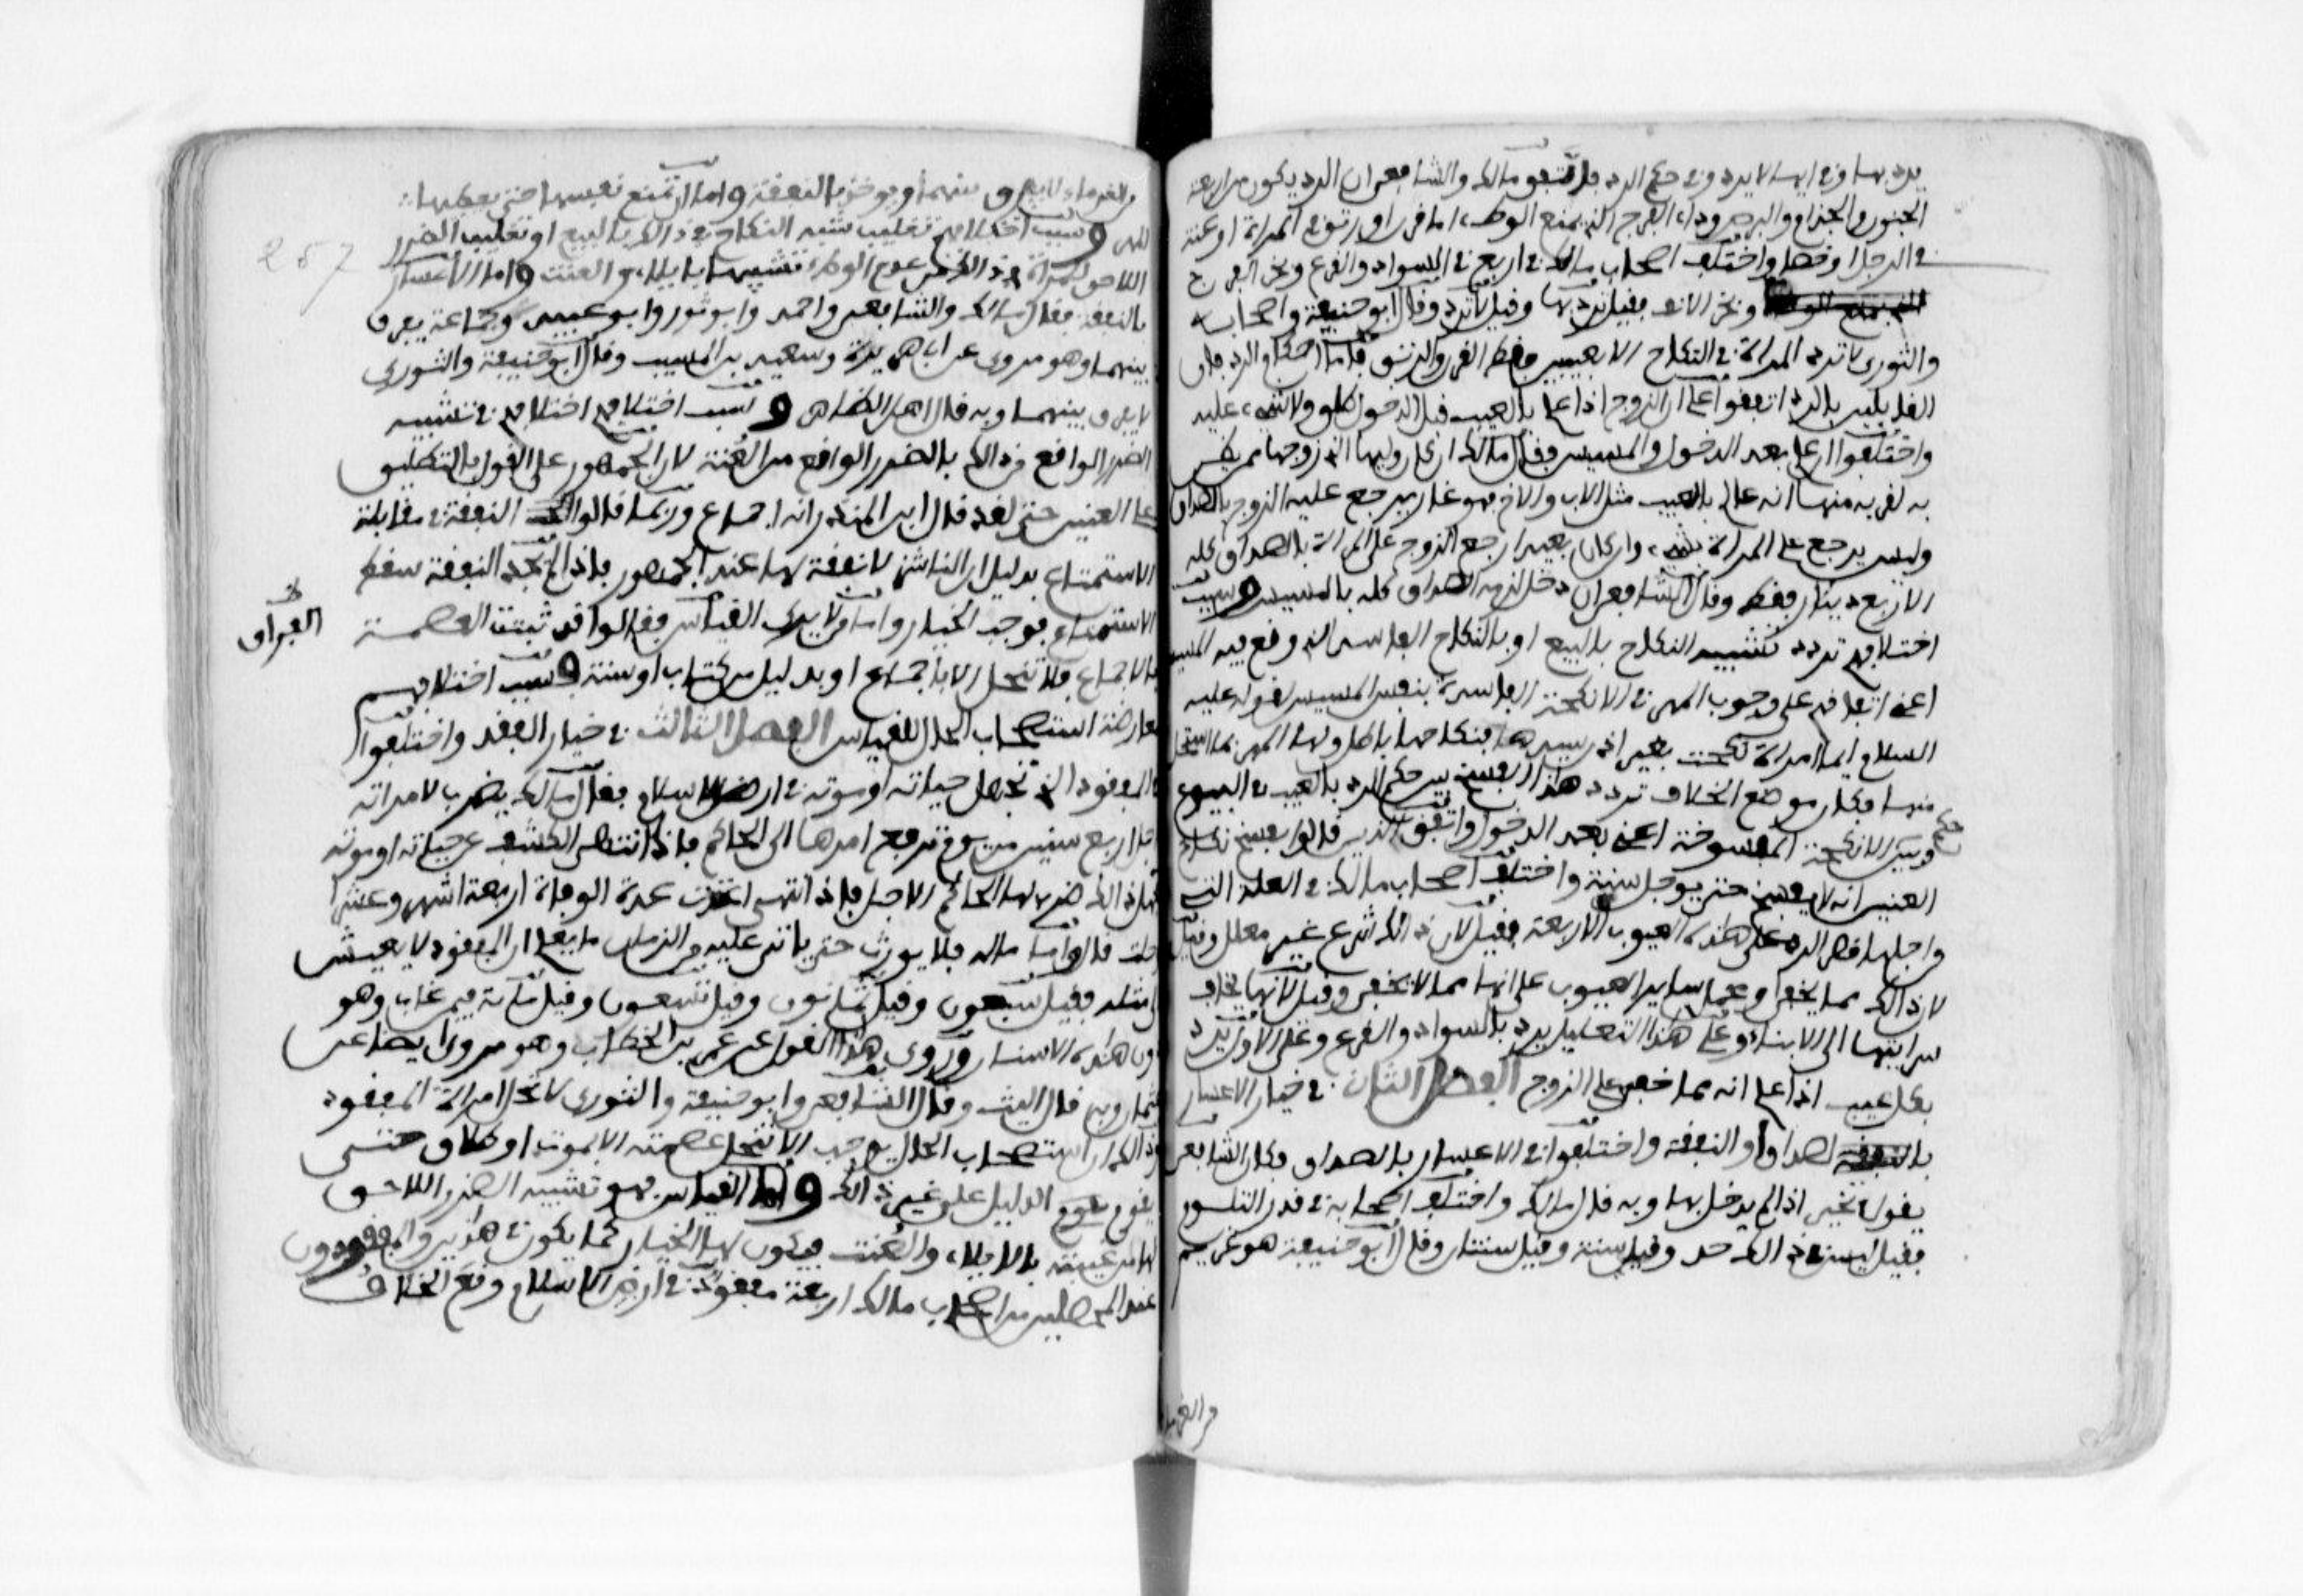 يرد بها وفي ايها لا يرد وفي حكم الرد فاتفق مالك والشافعي ان الرد يكون من اربعة
الجنون والجذام والبرص وداء الفرج الذي يمنع الوطء اما قرن او رتق في المراة او عنة
في الرجل او خصاء واختلف اصحاب مالك في اربع في السواد والقرع وبخر الفرج
وبخر الانف فقيل ترد بها وقيل لا ترد وقال ابو حنيفة واصحابه
والثوري لا ترد المراة في النكاح الا بعيبين فقط القرن والرتق فاما احكام الرد فان
القايلين بالرد اتفقوا على ان الزوج اذا علم بالعيب قبل الدخول طلق ولا شيء عليه
واختلفوا ان علم بعد الدخول والمسيس فقال مالك ان كان وليها الذي زوجها ممن يظن
به لقربه منها انه عالم بالعيب مثل الاب والاخ فهو غار يرجع عليه الزوج بالصداق
وليس يرجع على المراة بشيء وان كان بعيدا رجع الزوج على المراة بالصداق كله
الا ربع دينار فقط وقال الشافعي ان دخل لزمه الصداق كله بالمسيس وسبب
اختلافهم تردد تشبيه النكاح بالبيع او بالنكاح الفاسد الذي وقع فيه المسيس
اعني اتفاقهم على وجوب المهر في الانكحة الفاسدة بنفس المسيس لقوله عليه
السلام ايما امراة نكحت بغير اذن سيدها فنكاحها باطل ولها المهر بما استحل
منها فكان موضع الخلاف تردد هذا الفسخ بين حكم الرد بالعيب في البيوع
وبين حكم الانكحة المفسوخة اعني بعد الدخول واتفق الذين قالوا بفسخ نكاح
العنين انه لا يفسخ حتى يوجل سنة واختلف اصحاب مالك في العلة التي
من اجلها قصر الرد على هذه العيوب الاربعة فقيل لان ذالك شرع غير معلل وقيل
لان ذالك مما يخفى ومحمل ساير العيوب على انها مما لا يخفى وقيل لانها يخاف
سرايتها الى الابناء وعلى هذا التعليل يرد بالسواد والقرع وعلى الاول يرد
بكل عيب اذا علم انه مما خفي على الزوج الفصل الثاني في خيار الاعسار
بالصداق والنفقة واختلفوا في الاعسار بالصداق فكان الشافعي
يقول تخير اذا لم يدخل بها وبه قال مالك واختلف اصحابه في قدر التلوم
فقيل ليس في ذالك حد وقيل سنة وقيل سنتان وقال ابو حنيفة هو غريم
من الغرما
من الغرماء لا يفرق بينهما ويوخذ بالنفقة ولها ان تمنع نفسها حتى يعطيها
المهر وسبب اختلافهم تغليب شبه النكاح في ذالك بالبيع او تغليب الضرر
اللاحق للمراة في ذالك من عدم الوطء تشبيها بالايلاء والعنت واما الاعسار
بالنفقة فقال مالك والشافعي واحمد وابو ثور وابو عبيد وجماعة يفرق
بينهما وهو مروي عن ابي هريرة وسعيد بن المسيب وقال ابو حنيفة والثوري
لا يفرق بينهما وبه قال اهل الظاهر وسبب اختلافهم اختلافهم في تشبيه
الضرر الواقع من ذالك بالضرر الواقع من العنة لان الجمهور على القول بالتطليق
على العنين حتى لقد قال ابن المنذر انه اجماع وربما قالوا النفقة في مقابلة
الاستمتاع بدليل ان الناشز لا نفقة لها عند الجمهور فاذا لم تجد النفقة سقط
الاستمتاع فوجب الخيار واما من لا يرى القياس فقالوا قد ثبتت العصمة
الفراق
بالاجماع فلا تنحل الا باجماع او بدليل من كتاب او سنة وسبب اختلافهم
معارضة استصحاب الحال للقياس الفصل الثالث في خيار الفقد واختلفوا
في المفقود الذي تجهل حياته او موته في ارض الاسلام فقال مالك يضرب لامراته
اجل اربع سنين من يوم ترفع امرها الى الحاكم فاذا انتهى الكشف عن حياته او موته
فجهل ذالك ضرب لها الحاكم الاجل فاذا انتهى اعتدت عدة الوفاة اربعة اشهر وعشرا
وحلت قال واما ماله فلا يورث حتى ياتي عليه من الزمان ما يعلم ان المفقود لا يعيش
الى مثله فقيل سبعون وقيل ثمانون وقيل تسعون وقيل ماية فيمن غاب وهو
دون هذه الاسنان وروي هذا القول عن عمر بن الخطاب وهو مروي ايضا عن
عثمان وبه قال الليث وقال الشافعي وابو حنيفة والثوري لا تحل امراة المفقود
وذالك ان استصحاب الحال يوجب الا تنحل عصمته الا بموت او طلاق حتى
يقوم الدليل على غير ذالك واما القياس فهو تشبيه الضرر اللاحق
لها من غيبته بالايلاء والعنت فيكون لها الخيار كما يكون في هذين والمفقودون
عند المحصلين من اصحاب مالك اربعة مفقود في ارض الاسلام وقع الخلاف
257